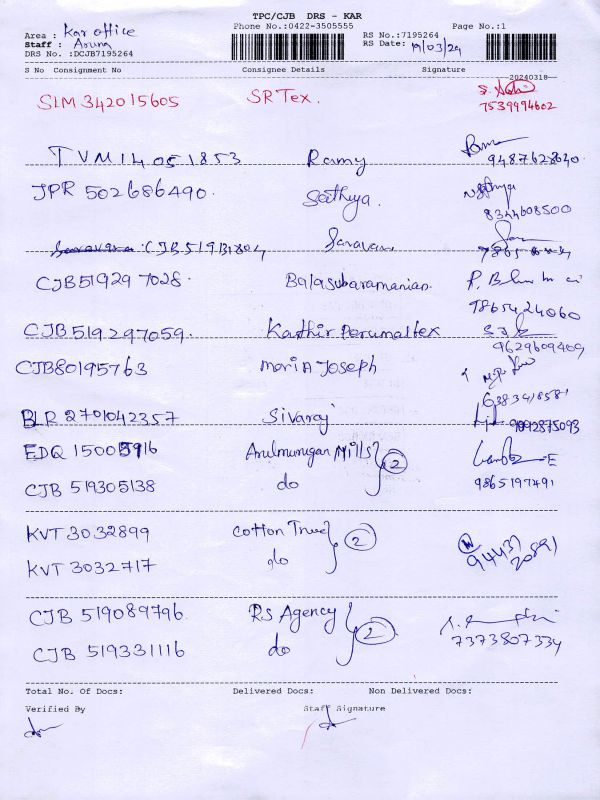 TPC/CJB DRS - KAR
Area : Kar office Phone No.:0422-3505555 RS No.:7195264 Page No.:1
Staff : Aruna RS Date: 19/03/24
DRS No. :DCJB7195264
S No Consignment No Consignee Details Signature
20240318
SLM 342015605 SR Tex. 7539994602
TVM14051853 Ramy 9487628640
JPR 502686490. Sathya. 8344608500
Saravana Saravan
CJB519297028. Balasubaramanian. 9865424060
CJB519297059. Kathir Perumaltex 9629609409
CJB80195763 Maria Joseph 6383418581
BLR 2701042357 Sivaraj 9092875093
EDQ 15005916 Arulmurugan Mills 2
CJB 519305138 do 9865197491
KVT 3032899 Cotton True 2
KVT 3032717 do 94437 20891
CJB 519089796. RS Agency 2
CJB 519331116 do 7373807334
Total No. Of Docs: Delivered Docs: Non Delivered Docs:
Verified By Staff Signature